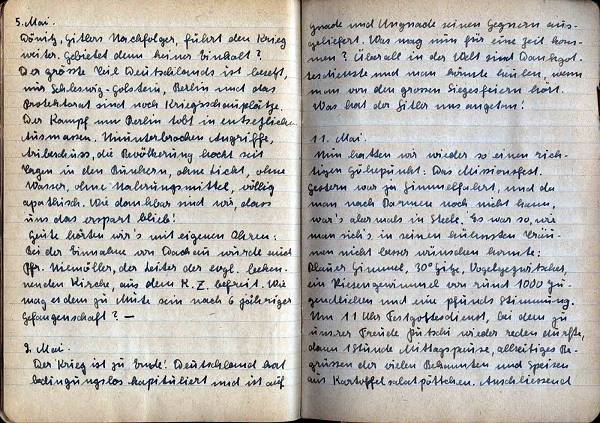 5. Mai.
Dönitz, Hitlers Nachfolger, führt den Krieg
weiter. Gebietet dem keiner Einhalt?
Der grösste Teil Deutschlands ist besetzt,
nur Schleswig-Holstein, Berlin und das
Protektorat sind noch Kriegsschauplätze.
Der Kampf um Berlin tobt in entsetzlichen
Ausmassen. Ununterbrochen Angriffe,
Artbeschuss, die Bevölkerung hockt seit
Tagen in den Bunkern, ohne Licht, ohne
Wasser, ohne Nahrungsmittel, völlig
apathisch. Wie dankbar sind wir, dass
uns das erspart blieb!
Heute hörten wir's mit eigenen Ohren:
Bei der Einnahme von Dachau wurde auch
Pfr. Niemöller, der Leiter der evgl. beken-
nenden Kirche, aus dem K.Z. befreit. Wie
mag es dem zu Mute sein nach 6 jähriger
Gefangenschaft? —
9. Mai.
Der Krieg ist zu Ende! Deutschland hat
bedingungslos kapituliert und ist auf
Gnade und Ungnade seinen Gegnern aus-
geliefert. Was mag nun für eine Zeit kom-
men? Überall in der Welt sind Dankgot-
tesdienste und man könnte heulen, wenn
man von den grossen Siegesfeiern hört.
Was hat der Hitler uns angetan!
11. Mai.
Nun hatten wir wieder so einen rich-
tigen Höhepunkt: Das Missionsfest.
Gestern war ja Himmelfahrt, und da
man nach Barmen noch nicht kann,
war's abermals in Steele. Es war so, wie
man sich's in seinen kühnsten Träu-
men nicht besser wünschen konnte:
Blauer Himmel, 30° Hitze, Vogelgezwitscher,
ein Riesengewimmel von rund 1000 Ju-
gendlichen und eine pfunds Stimmung.
Um 11 Uhr Festgottesdienst, bei dem zu
unserer Freude Putschi wieder reden durfte,
dann 1 Stunde Mittagspause, allseitiges Be-
grüssen der vielen Bekannten und Speisen
aus Kartoffelsalatpöttchen. Anschliessend